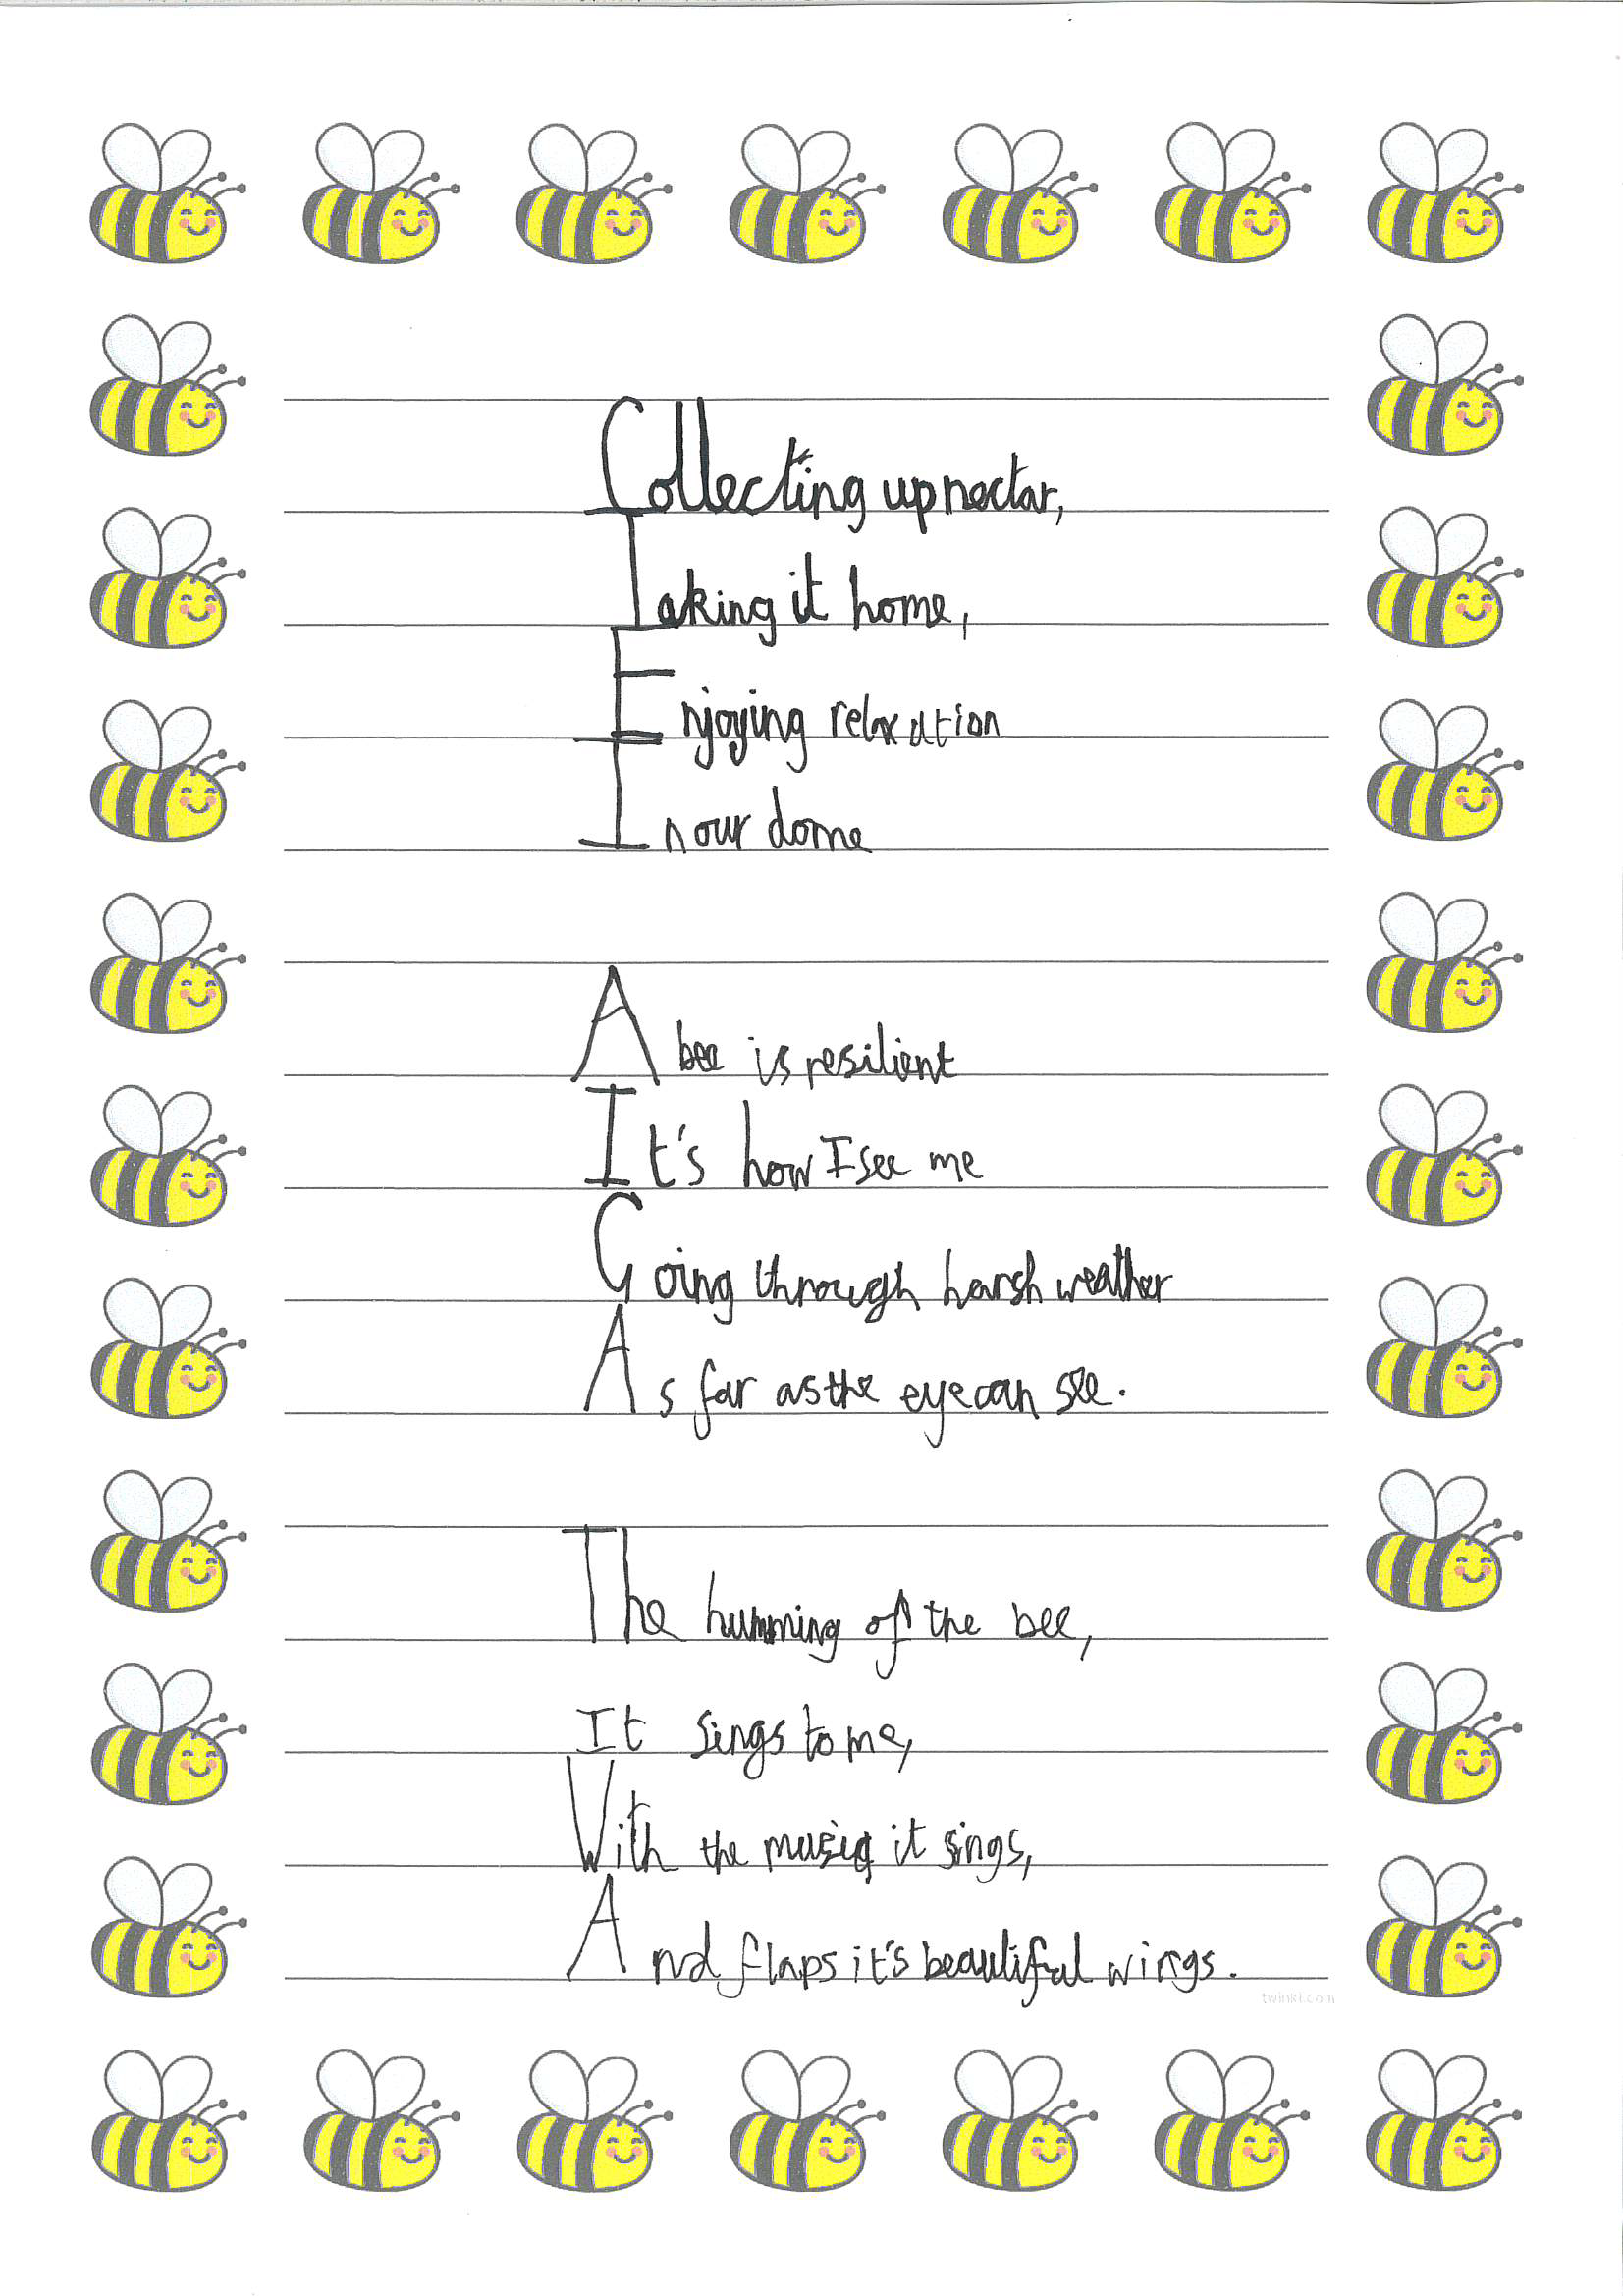 Collecting up nectar,
Taking it home,
Enjoying relaxation
In our dome
A bee is resilient
It's how I see me
Going through harsh weather
As far as the eye can see.
The humming of the bee,
It sings to me,
With the music it sings,
And flaps it's beautiful wings.
twinkl.com